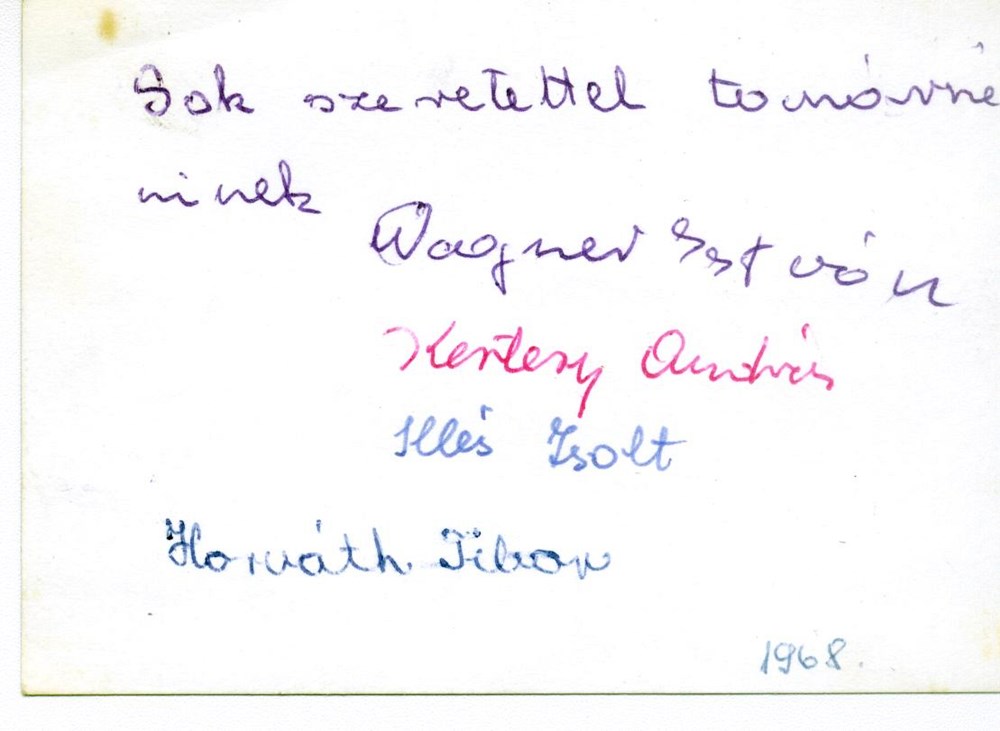 Sok szeretettel tanárné
ninek
Wagner István
Kertesz András
Illés Zsolt
Horváth Tibor
1968.